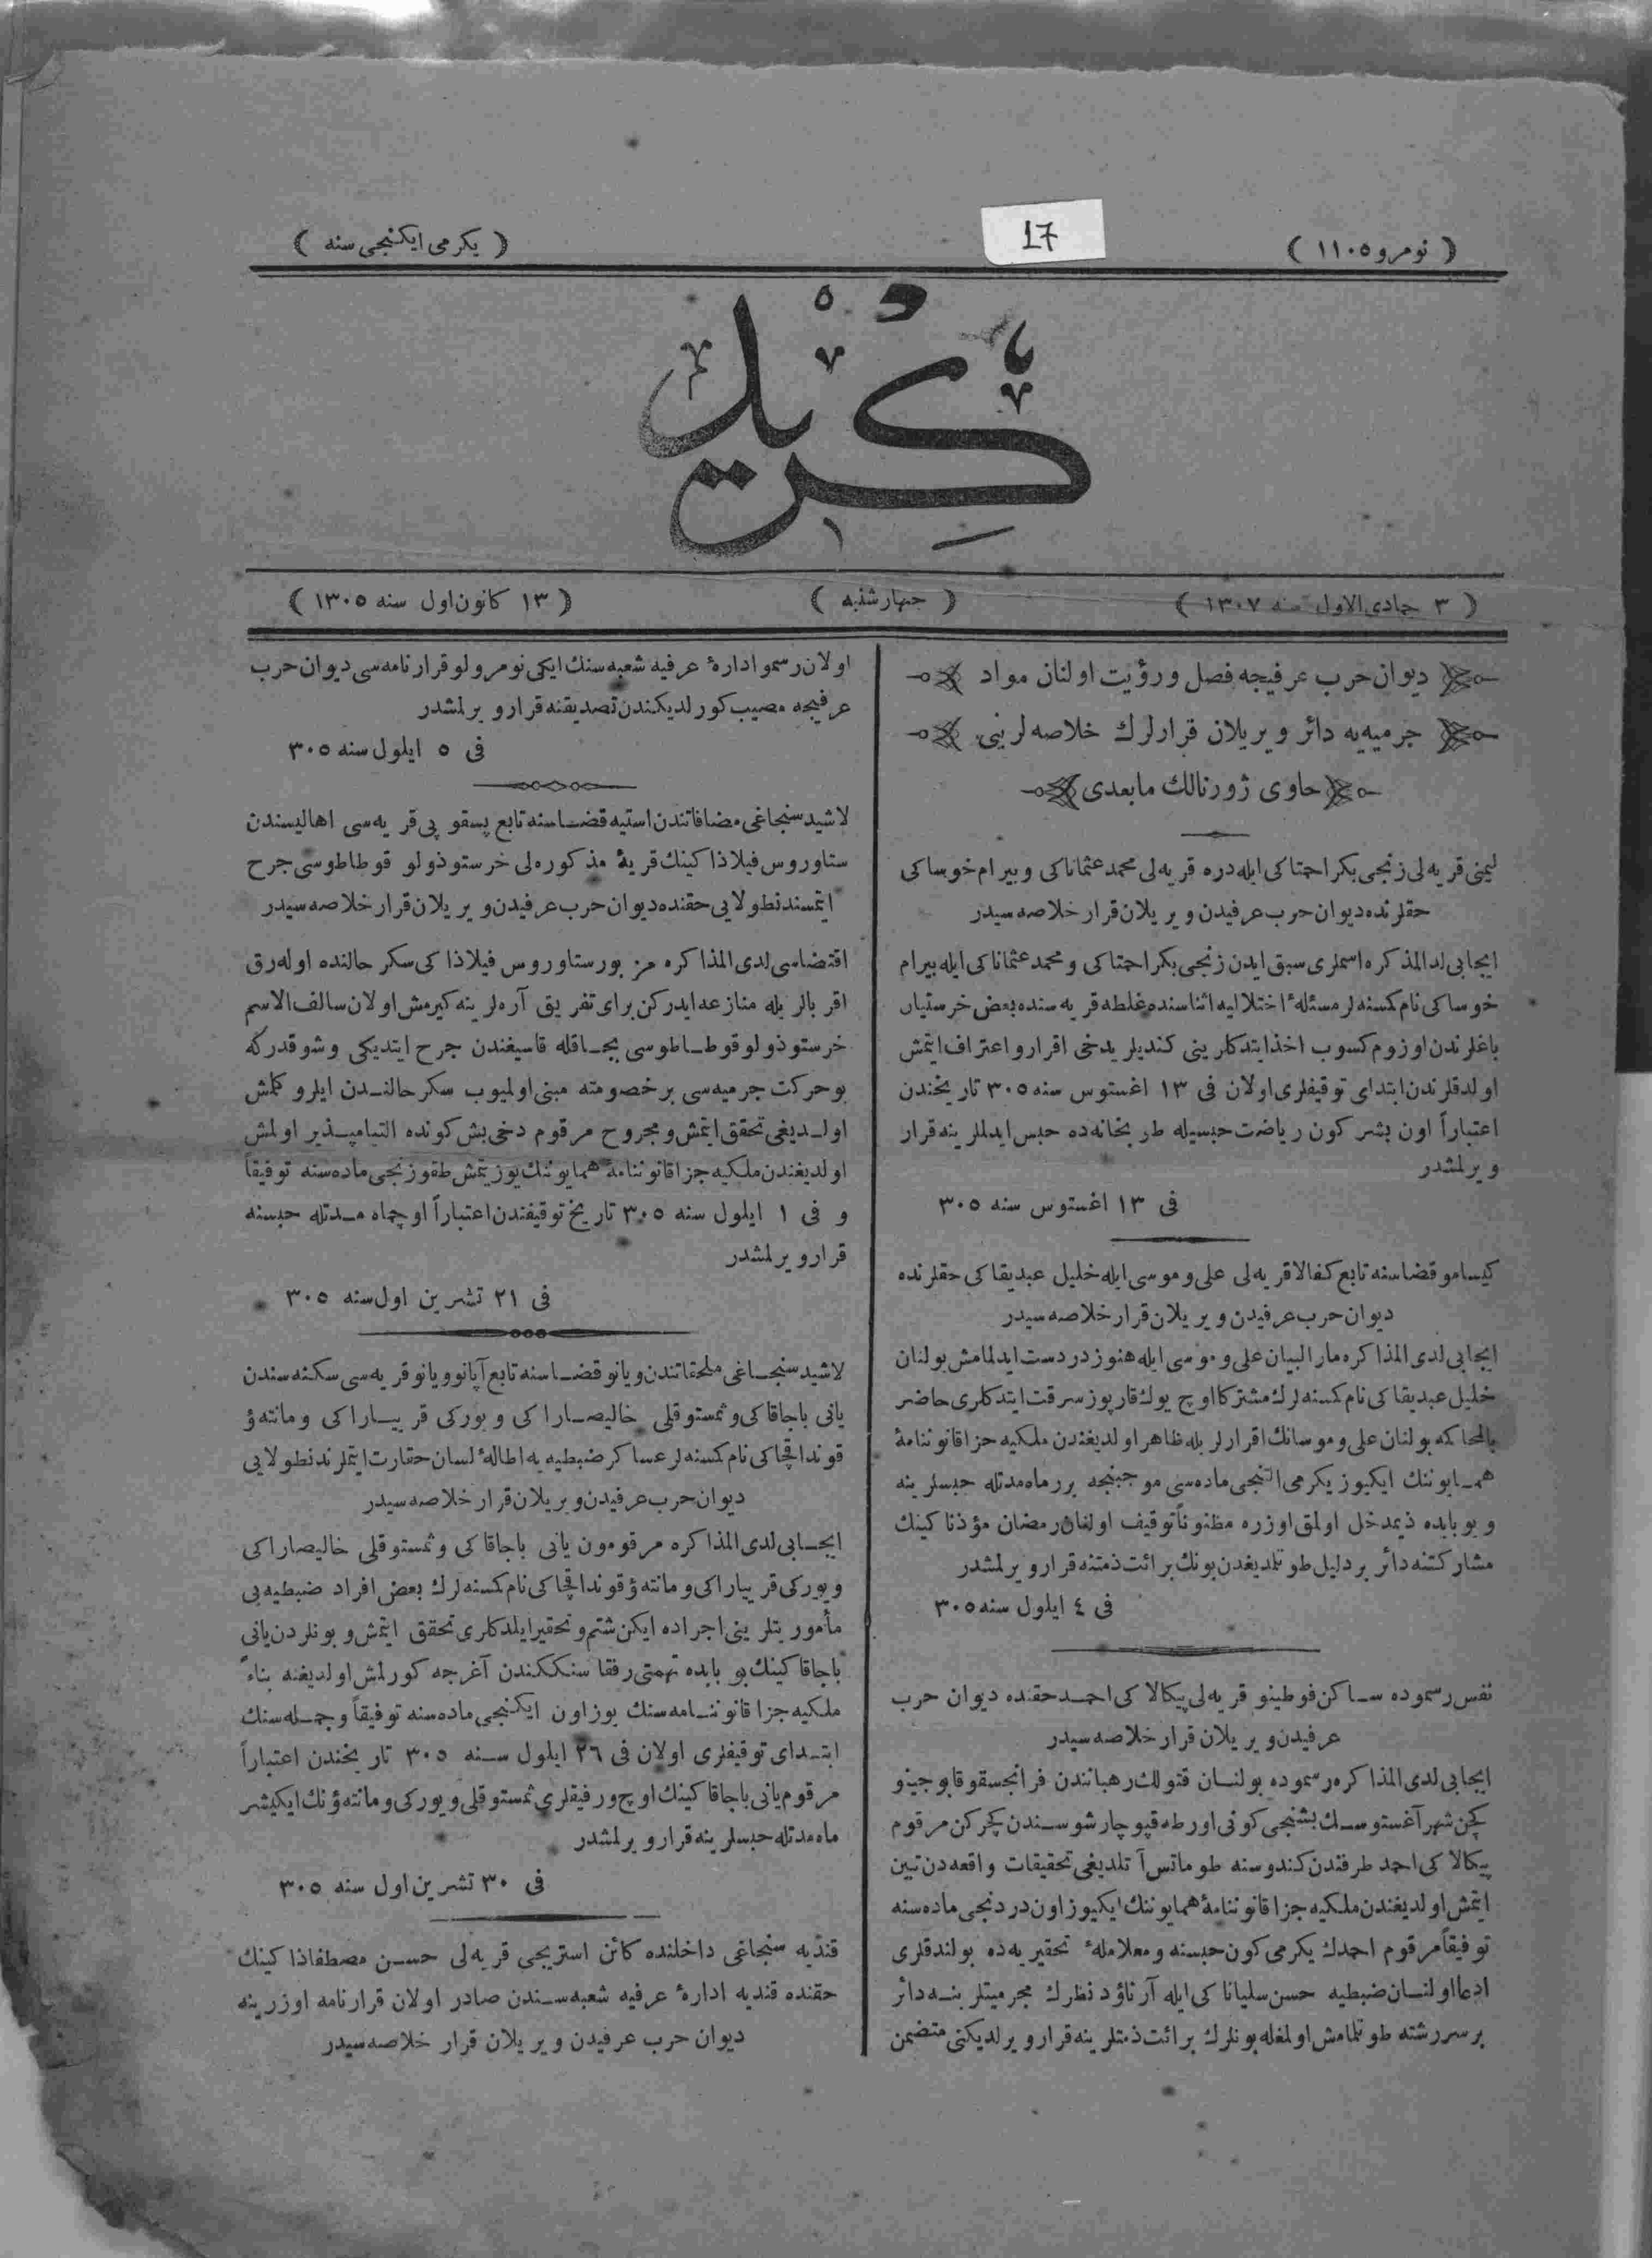 ( نومرو ١١٠٥ )
17
( یکرمی ایکنجی سنه )
کرید
( ٣ جمادی الاول سنه ١٣٠٧ )
( چهارشنبه )
( ١٣ کانون اول سنه ١٣٠٥ )
دیوان حرب عرفیجه فصل و رؤیت اولنان مواد
جرمیه‌یه دائر ویریلان قرارلرك خلاصه‌لرینی
حاوی ژورنالك مابعدی
لیمنی قریه‌لی زنجی بکر احمتاکی ایله دره قریه‌لی محمد عثماناکی و بیرام خوساکی
حقلرنده دیوان حرب عرفیدن ویریلان قرار خلاصه‌سیدر
ایجابی لدالمذکره اسملری سبق ایدن زنجی بکر احمتاکی و محمد عثماناکی ایله بیرام
خوساکی نام کسنه‌لر مسئلهٔ اختلالیه اثناسنده غلطه قریه‌سنده بعض خرستیان
باغلرندن اوزوم کسوب اخذ ایتدکلرینی کندیلریدخی اقرار و اعتراف ایتمش
اولدقلرندن ابتدای توقیفلری اولان فی ١٣ اغستوس سنه ٣٠٥ تاریخندن
اعتباراً اون بشر کون ریاضت حبسیله طربخانه‌ده حبس ایدلملرینه قرار
ویرلمشدر
فی ١٣ اغستوس سنه ٣٠٥
کیسامو قضاسنه تابع کفالا قریه‌لی علی و موسی ایله خلیل عبدیقاکی حقلرنده
دیوان حرب عرفیدن ویریلان قرار خلاصه‌سیدر
ایجابی لدی المذاکره مارالبیان علی و موسی ایله هنوز دردست ایدلمامش بولنان
خلیل عبدیقاکی نام کسنه‌لرك مشترکا اوچ یوك قارپوز سرقت ایتدکلری حاضر
بالمحاکمه بولنان علی و موسانك اقرارلریله ظاهر اولدیغندن ملکیه جزا قانوننامهٔ
همایوننك ایکیوز یکرمی التنجی ماده‌سی موجبنجه برر ماه مدتله حبسلرینه
و بوبابده ذیمدخل اولمق اوزره مظنوناً توقیف اولنان رمضان مؤذناکینك
مشارکتنه دائر بر دلیل طوتلدیغندن بونك برائت ذمتنه قرار ویرلمشدر
فی ٤ ایلول سنه ٣٠٥
نفس رسموده ساکن فوطینو قریه‌لی پیکالاکی احمد حقنده دیوان حرب
عرفیدن ویریلان قرار خلاصه‌سیدر
ایجابی لدی المذاکره رسموده بولنان قتولك رهبانندن فرانجسقو قابوجینو
کچن شهر آغستوسك بشنجی کونی اورطه قپو چارشوسندن کچرکن مرقوم
پیکالاکی احمد طرفندن کندوسنه طوماتس آتلدیغی تحقیقات واقعه‌دن تبین
ایتمش اولدیغندن ملکیه جزا قانوننامهٔ همایوننك ایکیوز اون دردنجی ماده‌سنه
توفیقاً مرقوم احمدك یکرمی کون حبسنه و معاملهٔ تحقیریه‌ده بولندقلری
ادعا اولنان ضبطیه حسن سلیاناکی ایله آرناؤد نظرك مجرمیتلرینه دائر
بر سررشته طوتلمامش اولمغله بونلرك برائت ذمتلرینه قرار ویرلدیکنی متضمن
اولان رسمو ادارهٔ عرفیه شعبه‌سنك ایکی نومرولو قرارنامه‌سی دیوان حرب
عرفیجه مصیب کورلدیکندن تصدیقنه قرار ویرلمشدر
فی ٥ ایلول سنه ٣٠٥
لاشید سنجاغی مضافاتندن استیه قضاسنه تابع پسقوپی قریه‌سی اهالیسندن
ستاوروس فیلاذاکینك قریهٔ مذکوره‌لی خرستوذولو قوطاطوسی جرح
ایتمسندنطولایی حقنده دیوان حرب عرفیدن ویریلان قرار خلاصه‌سیدر
اقتضاسی لدی المذاکره مزبور ستاوروس فیلاذاکی سکر حالنده اوله‌رق
اقربالریله منازعه ایدرکن برای تفریق آره‌لرینه کیرمش اولان سالف الاسم
خرستوذولو قوطاطوسی بچاقله قاسیغندن جرح ایتدیکی و شو قدرکه
بو حرکت جرمیه‌سی بر خصومته مبنی اولمیوب سکر حالندن ایلرو کلمش
اولدیغی تحقق ایتمش و مجروح مرقوم دخی بش کونده التیامپذیر اولمش
اولدیغندن ملکیه جزا قانوننامهٔ همایوننك یوز یتمش طقوزنجی ماده‌سنه توفیقاً
و فی ١ ایلول سنه ٣٠٥ تاریخ توقیفندن اعتباراً اوچماه مدتله حبسنه
قرار ویرلمشدر
فی ٢١ تشرین اول سنه ٣٠٥
لاشید سنجاغی ملحقاتندن ویانو قضاسنه تابع آپانو ویانو قریه‌سی سکنه‌سندن
یانی باجاقاکی و ثمستوقلی خالیصاراکی و یورکی قریپاراکی و مانته‌ؤ
قونداقجاکی نام کسنه‌لر عساکر ضبطیه‌یه اطالهٔ لسان حقارت ایتملرندنطولایی
دیوان حرب عرفیدن ویریلان قرار خلاصه‌سیدر
ایجابی لدی المذاکره مرقومون یانی باجاقاکی و ثمستوقلی خالیصاراکی
و یورکی قریپاراکی و مانته‌ؤ قونداقجاکی نام کسنه‌لرك بعض افراد ضبطیه‌یی
مأموریتلرینی اجراده ایکن شتم و تحقیر ایلدکلری تحقق ایتمش و بونلردن یانی
باجاقاکینك بو بابده تهمتی رفقاسنککندن آغرجه کورلمش اولدیغنه بناءً
ملکیه جزا قانوننامه‌سنك یوز اون ایکنجی ماده‌سنه توفیقاً و جمله‌سنك
ابتدای توقیفلری اولان فی ٢٦ ایلول سنه ٣٠٥ تاریخندن اعتباراً
مرقوم یانی باجاقاکینك اوچ و رفیقلری ثمستوقلی و یورکی و مانته‌ؤنك ایکیشر
ماه مدتله حبسلرینه قرار ویرلمشدر
فی ٣٠ تشرین اول سنه ٣٠٥
قندیه سنجاغی داخلنده کائن استریجی قریه‌لی حسن مصطفاذاکینك
حقنده قندیه ادارهٔ عرفیه شعبه‌سندن صادر اولان قرارنامه اوزرینه
دیوان حرب عرفیدن ویریلان قرار خلاصه‌سیدر